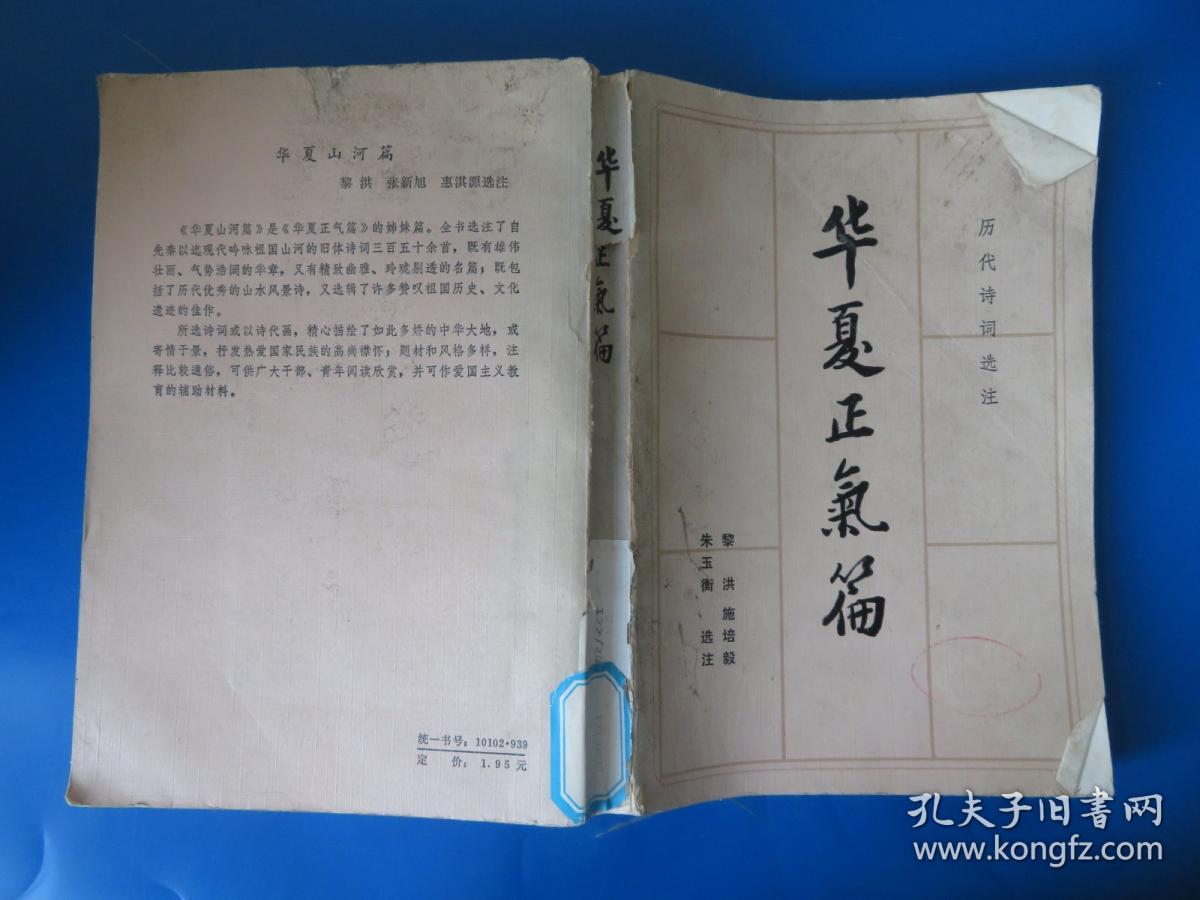 华夏山河篇
黎洪 张新旭 惠淇源选注
《华夏山河篇》是《华夏正气篇》的姊妹篇。全书选注了自
先秦以迄现代吟咏祖国山河的旧体诗词三百五十余首，既有雄伟
壮丽、气势浩阔的华章，又有精致幽雅、玲珑剔透的名篇；既包
括了历代优秀的山水风景诗，又选辑了许多赞叹祖国历史、文化
遗迹的佳作。
所选诗词或以诗代画，精心描绘了如此多娇的中华大地，或
寄情于景，抒发热爱国家民族的高尚襟怀；题材和风格多样，注
释比较通俗，可供广大干部、青年阅读欣赏，并可作爱国主义教
育的辅助材料。
统一书号：10102·939
定 价：1.95元
华夏正氣篇
历代诗词选注
华夏正氣篇
黎 洪 施培毅
朱玉衡 选注
孔夫子旧书网
www.kongfz.com